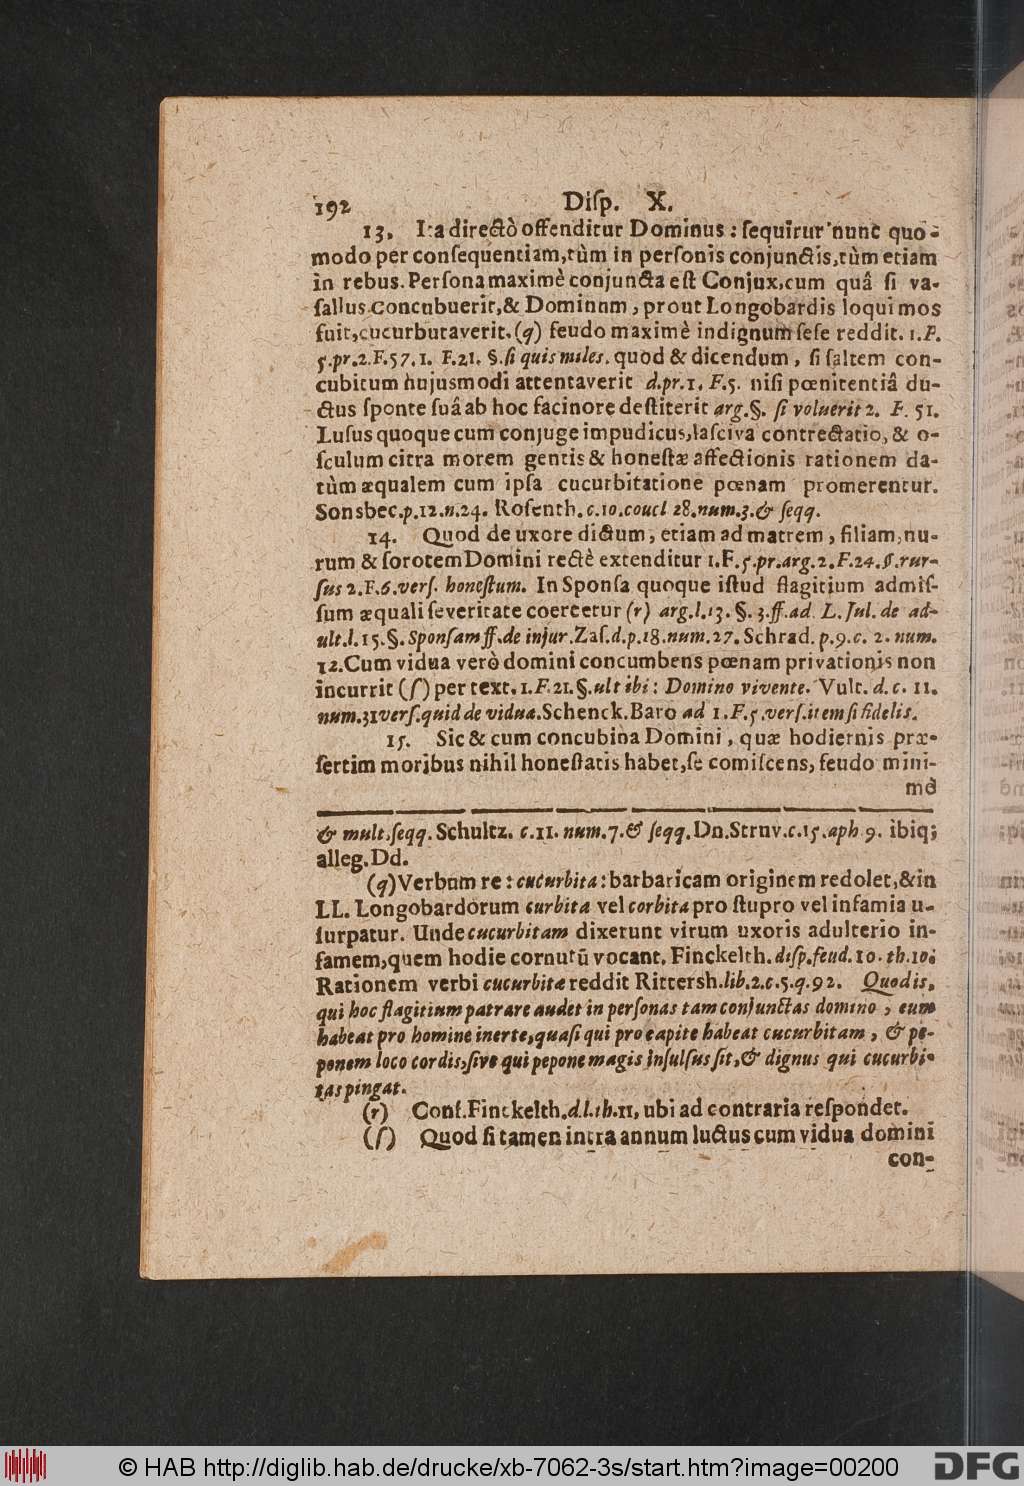 192 Diſp. X.
13. Ita directò offenditur Dominus: ſequitur nunc quo-
modo per conſequentiam, tùm in perſonis conjunctis, tùm etiam
in rebus. Perſona maximè conjuncta eſt Conjux, cum quâ ſi va-
ſallus concubuerit, & Dominum, prout Longobardis loqui mos
fuit, cucurbutaverit. (q) feudo maximè indignum ſeſe reddit. 1. F.
5. pr. 2. F. 57. 1. F. 21. §. ſi quis miles. quod & dicendum, ſi ſaltem con-
cubitum hujusmodi attentaverit d. pr. 1. F. 5. niſi pœnitentiâ du-
ctus ſponte ſuâ ab hoc facinore deſtiterit arg. §. ſi voluerit 2. F. 51.
Luſus quoque cum conjuge impudicus, laſciva contrectatio, & o-
ſculum citra morem gentis & honeſtæ affectionis rationem da-
tùm æqualem cum ipſa cucurbitatione pœnam promerentur.
Sonsbec. p. 12. n. 24. Roſenth. c. 10. coucl 28. num. 3. & ſeqq.
14. Quod de uxore dictum, etiam ad matrem, filiam, nu-
rum & ſorotem Domini rectè extenditur 1. F. 5. pr. arg. 2. F. 24. §. rur-
ſus 2. F. 6. verſ. honeſtum. In Sponſa quoque iſtud flagitium admiſ-
ſum æquali ſeveritate coercetur (r) arg. l. 13. §. 3. ff. ad. L. Jul. de ad-
ult. l. 15. §. Sponſam ff. de injur. Zaſ. d. p. 18. num. 27. Schrad. p. 9. c. 2. num.
12. Cum vidua verò domini concumbens pœnam privationis non
incurrit (ſ) per text. 1. F. 21. §. ult ibi: Domino vivente. Vult. d. c. 11.
num. 31 verſ. quid de vidua. Schenck. Baro ad 1. F. 5. verſ. item ſi fidelis.
15. Sic & cum concubina Domini, quæ hodiernis præ-
ſertim moribus nihil honeſtatis habet, ſe comiſcens, feudo mini-
mè
& mult. ſeqq. Schultz. c. 11. num. 7. & ſeqq. Dn. Struv. c. 15. aph 9. ibiq;
alleg. Dd.
(q) Verbum re: cucurbita: barbaricam originem redolet, & in
LL. Longobardorum curbita vel corbita pro ſtupro vel infamia u-
ſurpatur. Unde cucurbitam dixerunt virum uxoris adulterio in-
famem, quem hodie cornutū vocant. Finckelth. diſp. feud. 10. th. 10.
Rationem verbi cucurbitæ reddit Rittersh. lib. 2. c. 5. q. 92. Quod is,
qui hoc flagitium patrare audet in perſonas tam conjunctas domino, eum
habeat pro homine inerte, quaſi qui pro capite habeat cucurbitam, & pe-
ponem loco cordis, ſive qui pepone magis inſulſus ſit, & dignus qui cucurbi-
tas pingat.
(r) Conf. Finckelth. d. l. th. 11, ubi ad contraria reſpondet.
(ſ) Quod ſi tamen intra annum luctus cum vidua domini
con-
© HAB http://diglib.hab.de/drucke/xb-7062-3s/start.htm?image=00200
DFG